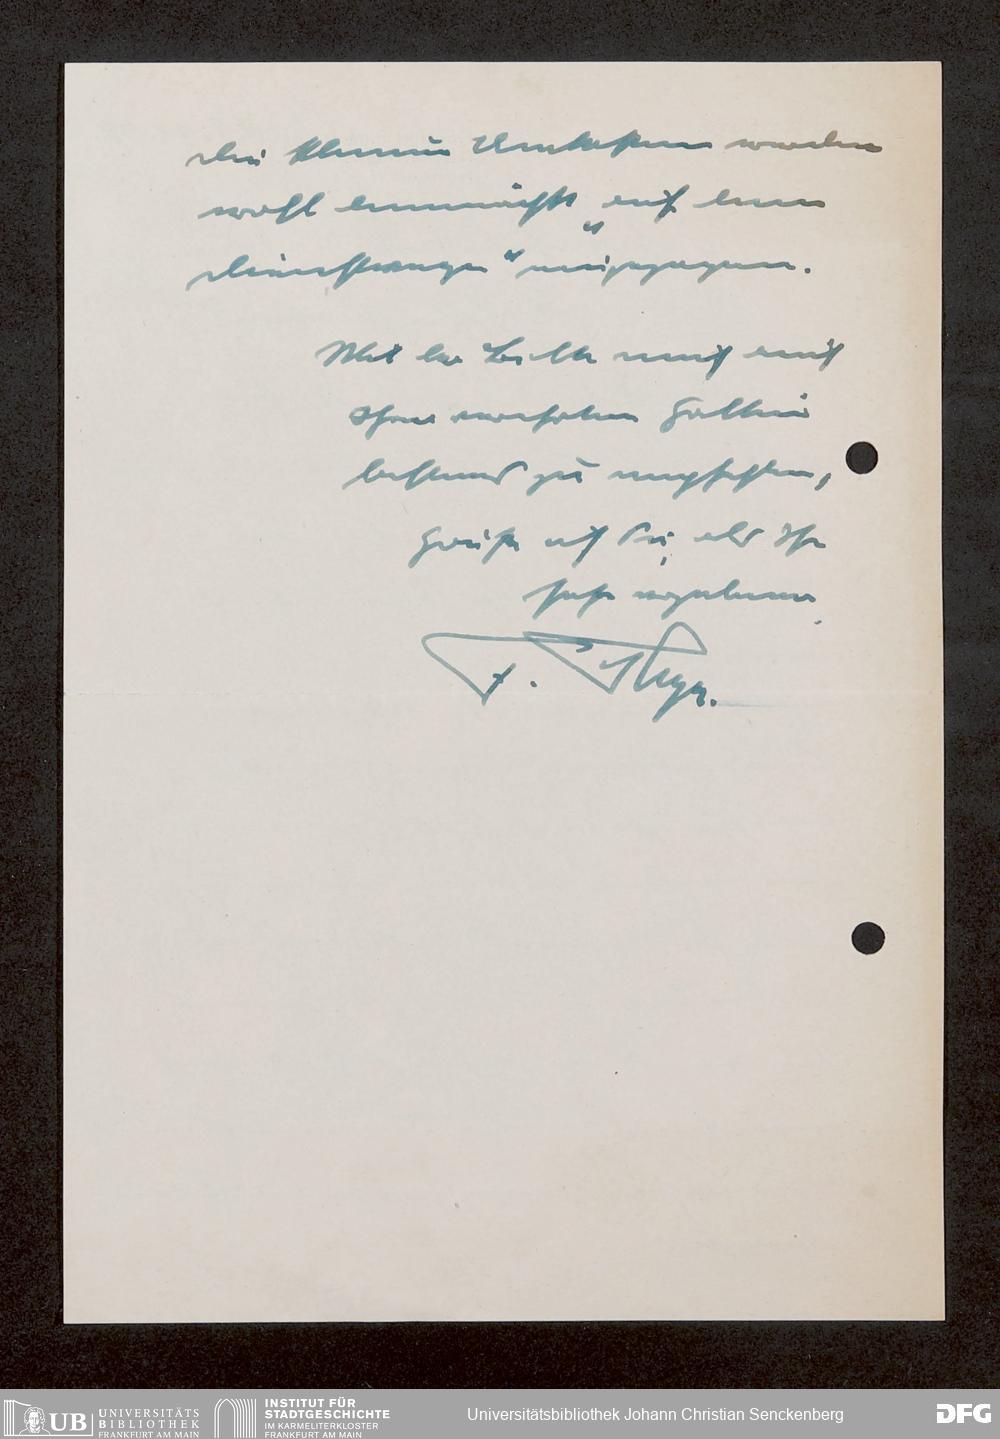 Die kleinen Unkosten werden
wohl demnächst auf dem
"Dienstwege" 
Mit der Bitte mich auch
Ihrer verehrten Gattin
bestens zu empfehlen,
grüße ich Sie als Ihr
sehr ergebener
F.
UB UNIVERSITÄTS
BIBLIOTHEK
FRANKFURT AM MAIN
INSTITUT FÜR
STADTGESCHICHTE
IM KARMELITERKLOSTER
FRANKFURT AM MAIN
Universitätsbibliothek Johann Christian Senckenberg
DFG